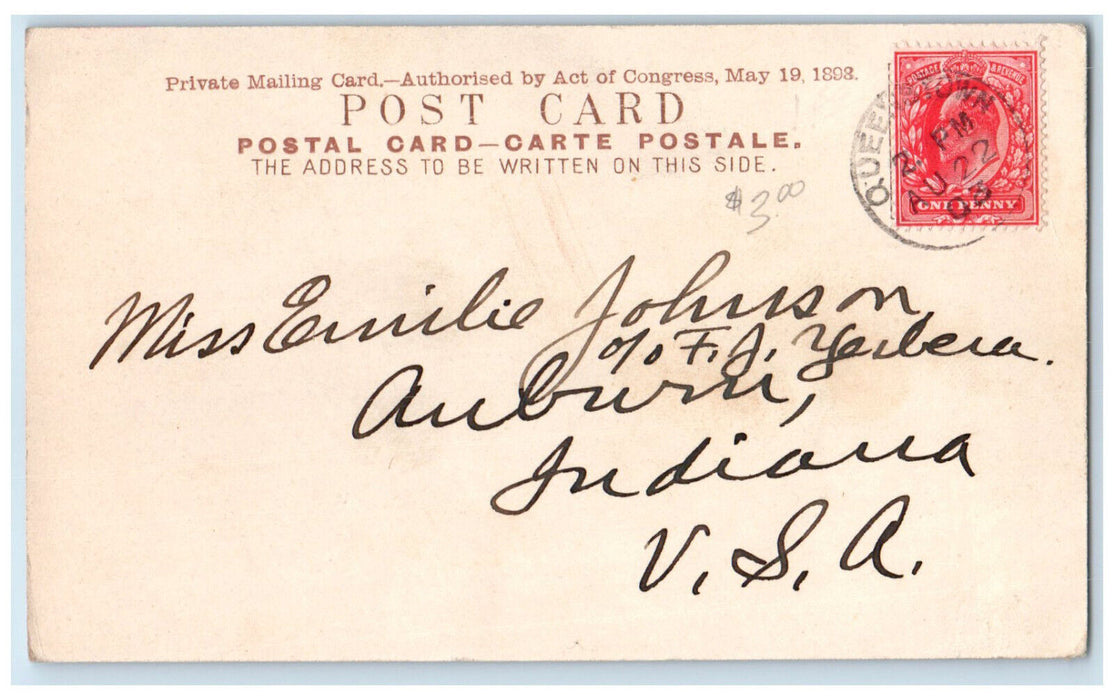 Private Mailing Card.—Authorised by Act of Congress, May 19, 1898.
POST CARD
POSTAL CARD—CARTE POSTALE.
THE ADDRESS TO BE WRITTEN ON THIS SIDE.
POSTAGE & REVENUE
ONE PENNY
QUEENSTOWN
PM
AU 22
$3.00
Miss Emilie Johnson
c/o F. J.
Auburn,
Indiana
U.S.A.